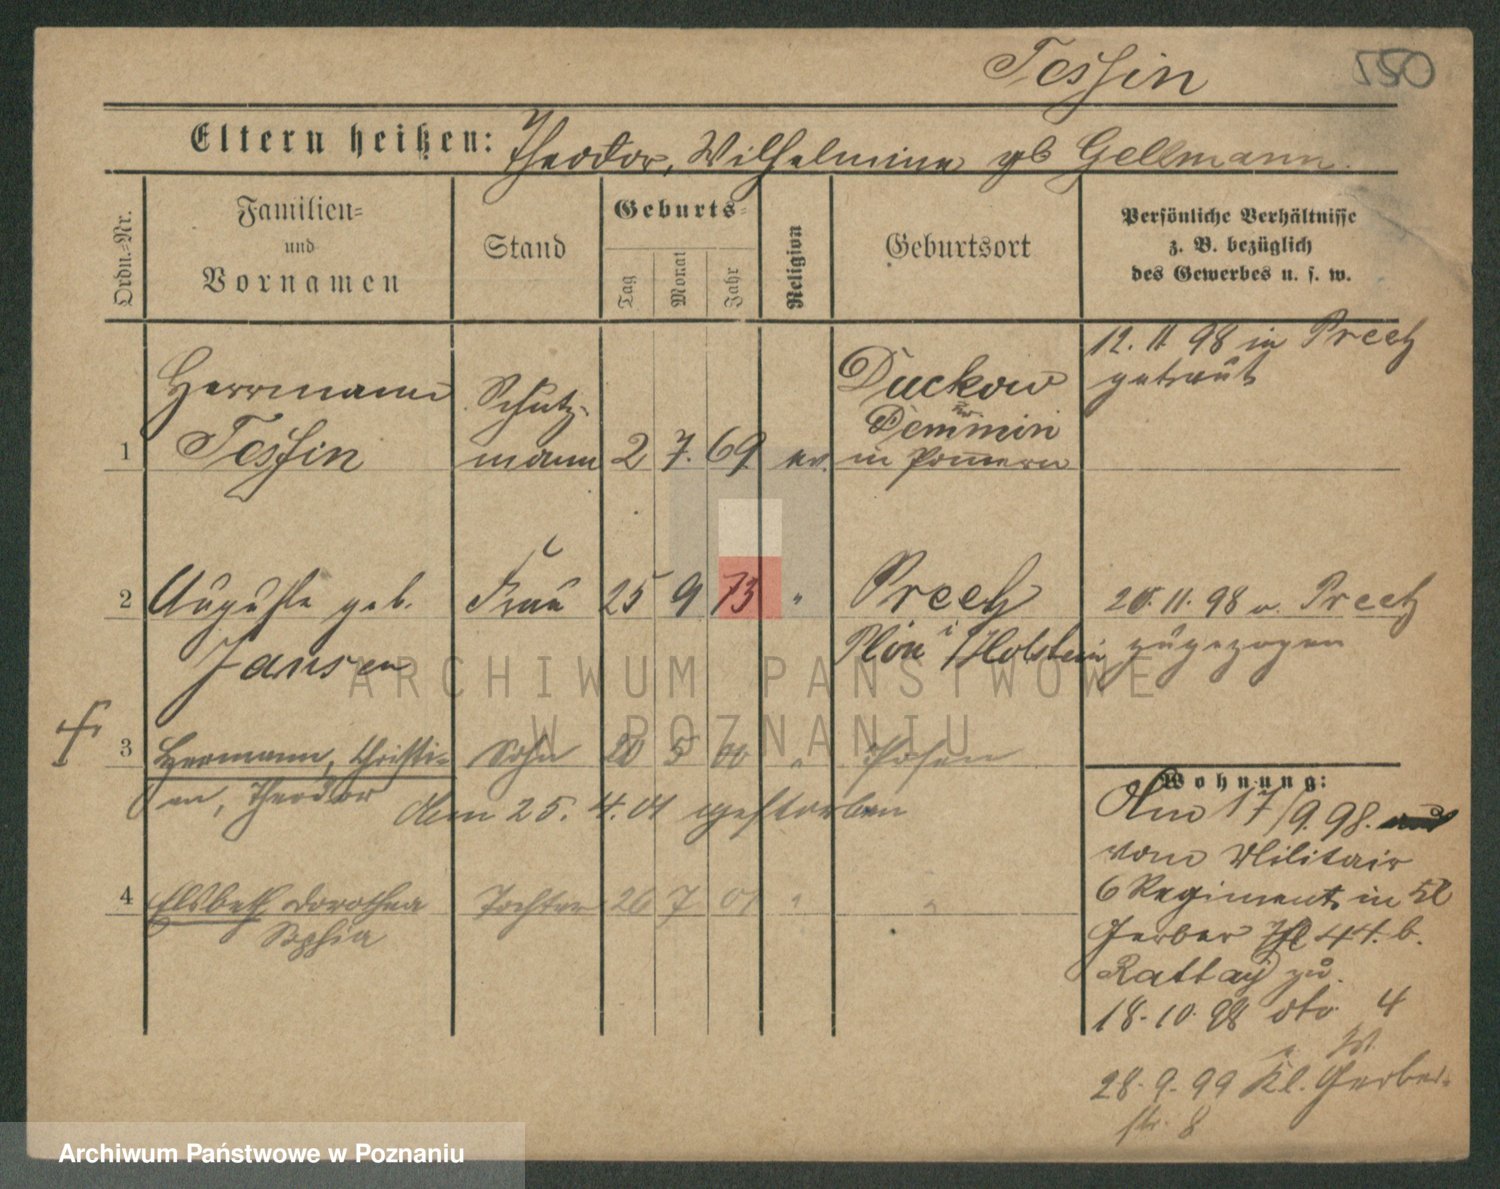 Tessin 550
Eltern heißen: Theodor, Wilhelmine gb Gellmann.
Ordn.-Nr.
Familien-
und
Vornamen
Stand
Geburts-
Tag
Monat
Jahr
Religion
Geburtsort
Persönliche Verhältnisse
z. B. bezüglich
des Gewerbes u. s. w.
1 Herrmann Tessin
Schutz-
mann
2 7. 69. ev.
Duckow
Demmin
in Pommern
12. 11. 98 in Preetz
getraut
2 Auguste geb.
Jansen
Frau 25 9 73 "
Preetz
Plön i/Holstein
20. 11. 98 v. Preetz
zugezogen
3 Hermann, Christi-
an, Theodor
Sohn 20 5 00 " Posen
Am 25. 4. 01 gestorben
4 Elsbeth Dorothea
Sophia
Tochter 26 7 01 " "
Wohnung:
Am 17/9. 98.
vom Militair
6 Regiment in Kl
Gerber 44. b.
Rattay zu.
18. 10. 98 dto 4
W.
28. 9. 99 Kl. Gerber-
str. 8
ARCHIWUM PAŃSTWOWE
W POZNANIU
Archiwum Państwowe w Poznaniu